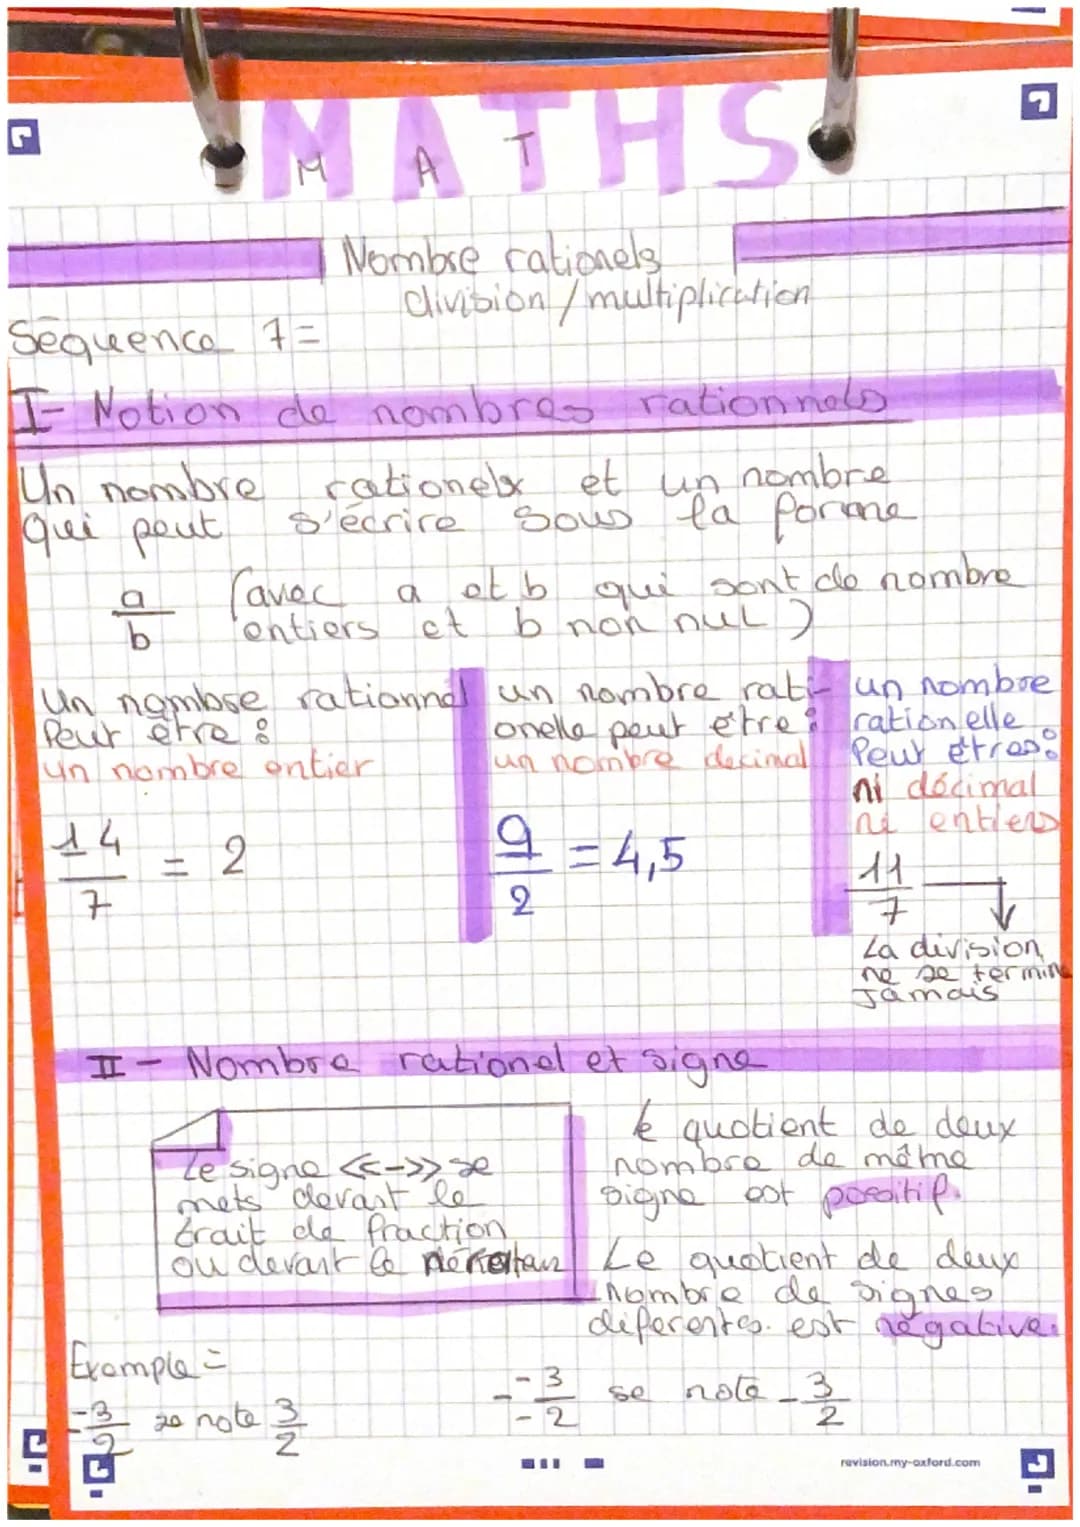 MATHS
M A T
Nombre rationels
division / multiplication
Séquence 7=
I- Notion de nombres rationnels
Un nombre rationelx et un nombre
qui peut s'écrire sous la forme
a/b (avec a et b qui sont de nombre
entiers et b non nul)
Un nombre rationnel
Peut être :
un nombre entier
14/7 = 2
un nombre rati-
onelle peut être :
un nombre decimal
9/2 = 4,5
un nombre
rationelle
Peut êtres :
ni décimal
ni entiers
11/7
La division
ne se termine
Jamais
II - Nombre rationel et signe
Le signe <<->> se
mets devant le
trait de fraction
ou devant le
le quotient de deux
nombre de même
signe est positif.
Le quotient de deux
nombre de signes
diferentes. est négative.
Exemple =
-3/2 se note 3/2
- -3/-2 se note - 3/2
revision.my-oxford.com